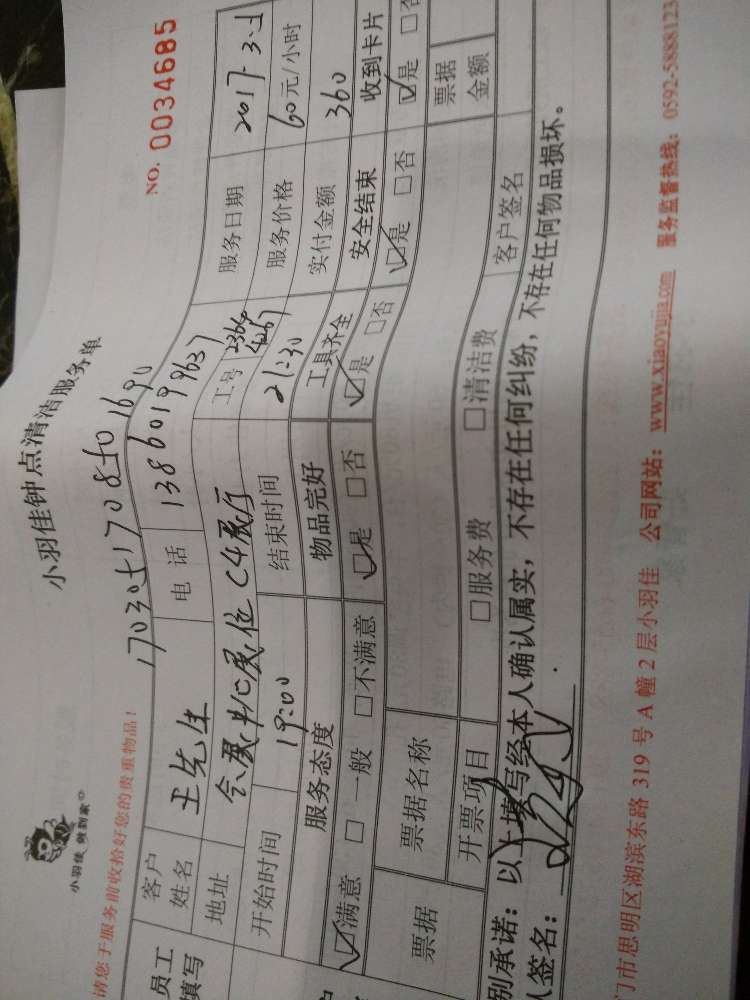 小羽佳钟点清洁服务单
NO. 0034685
小羽佳 做到家
请您于服务前收拾好您的贵重物品!
员工
填写
客户姓名 王先生 电话 13860199637 服务日期
地址 会展中心展位C4展厅 工号 服务价格 60元/小时
开始时间 19:00 结束时间 21:30 实付金额 360
服务态度 物品完好 工具齐全 安全结束 收到卡片
☑满意 □一般 □不满意 ☑是 □否 ☑是 □否 ☑是 □否 ☑是 □否
票据 票据名称 票据金额
开票项目 □服务费 □清洁费 客户签名
别承诺:以上填写经本人确认属实,不存在任何纠纷,不存在任何物品损坏。
(签名:
门市思明区湖滨东路319号A幢2层小羽佳 公司网站:www.xiaoyujia.com 服务监督热线:0592-5888123